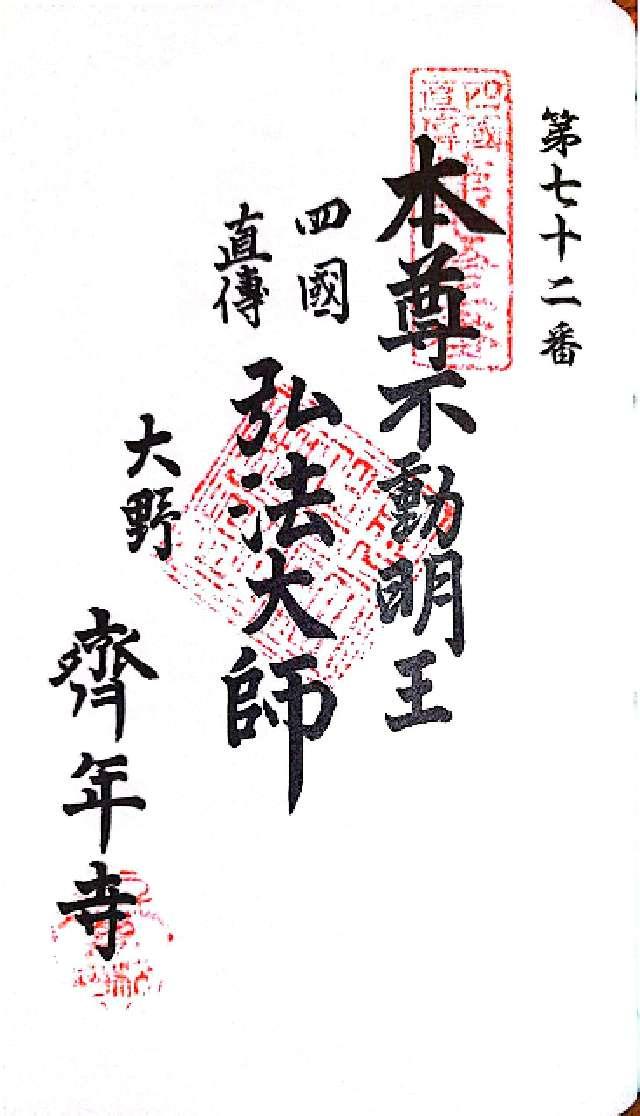 第七十二番
本尊不動明王
四國
直傳
弘法大師
大野
齊年寺
四國
直傳